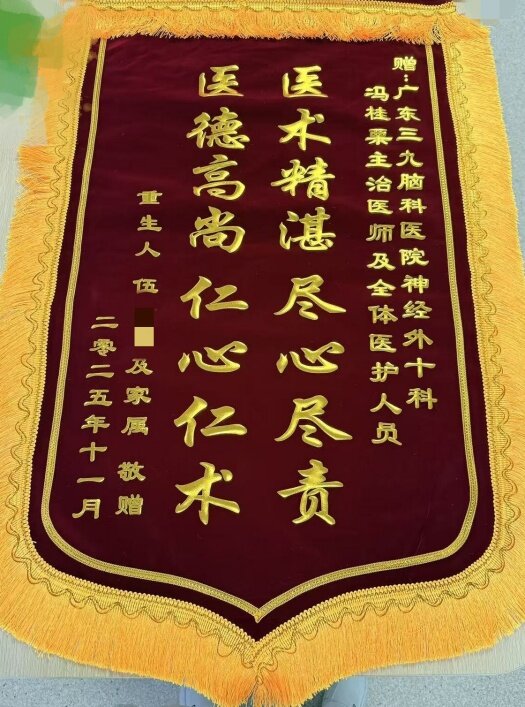 赠：广东三九脑科医院神经外十科
冯桂栗主治医师及全体医护人员
医术精湛 尽心尽责
医德高尚 仁心仁术
重生人 伍
及家属 敬赠
二零二五年十一月